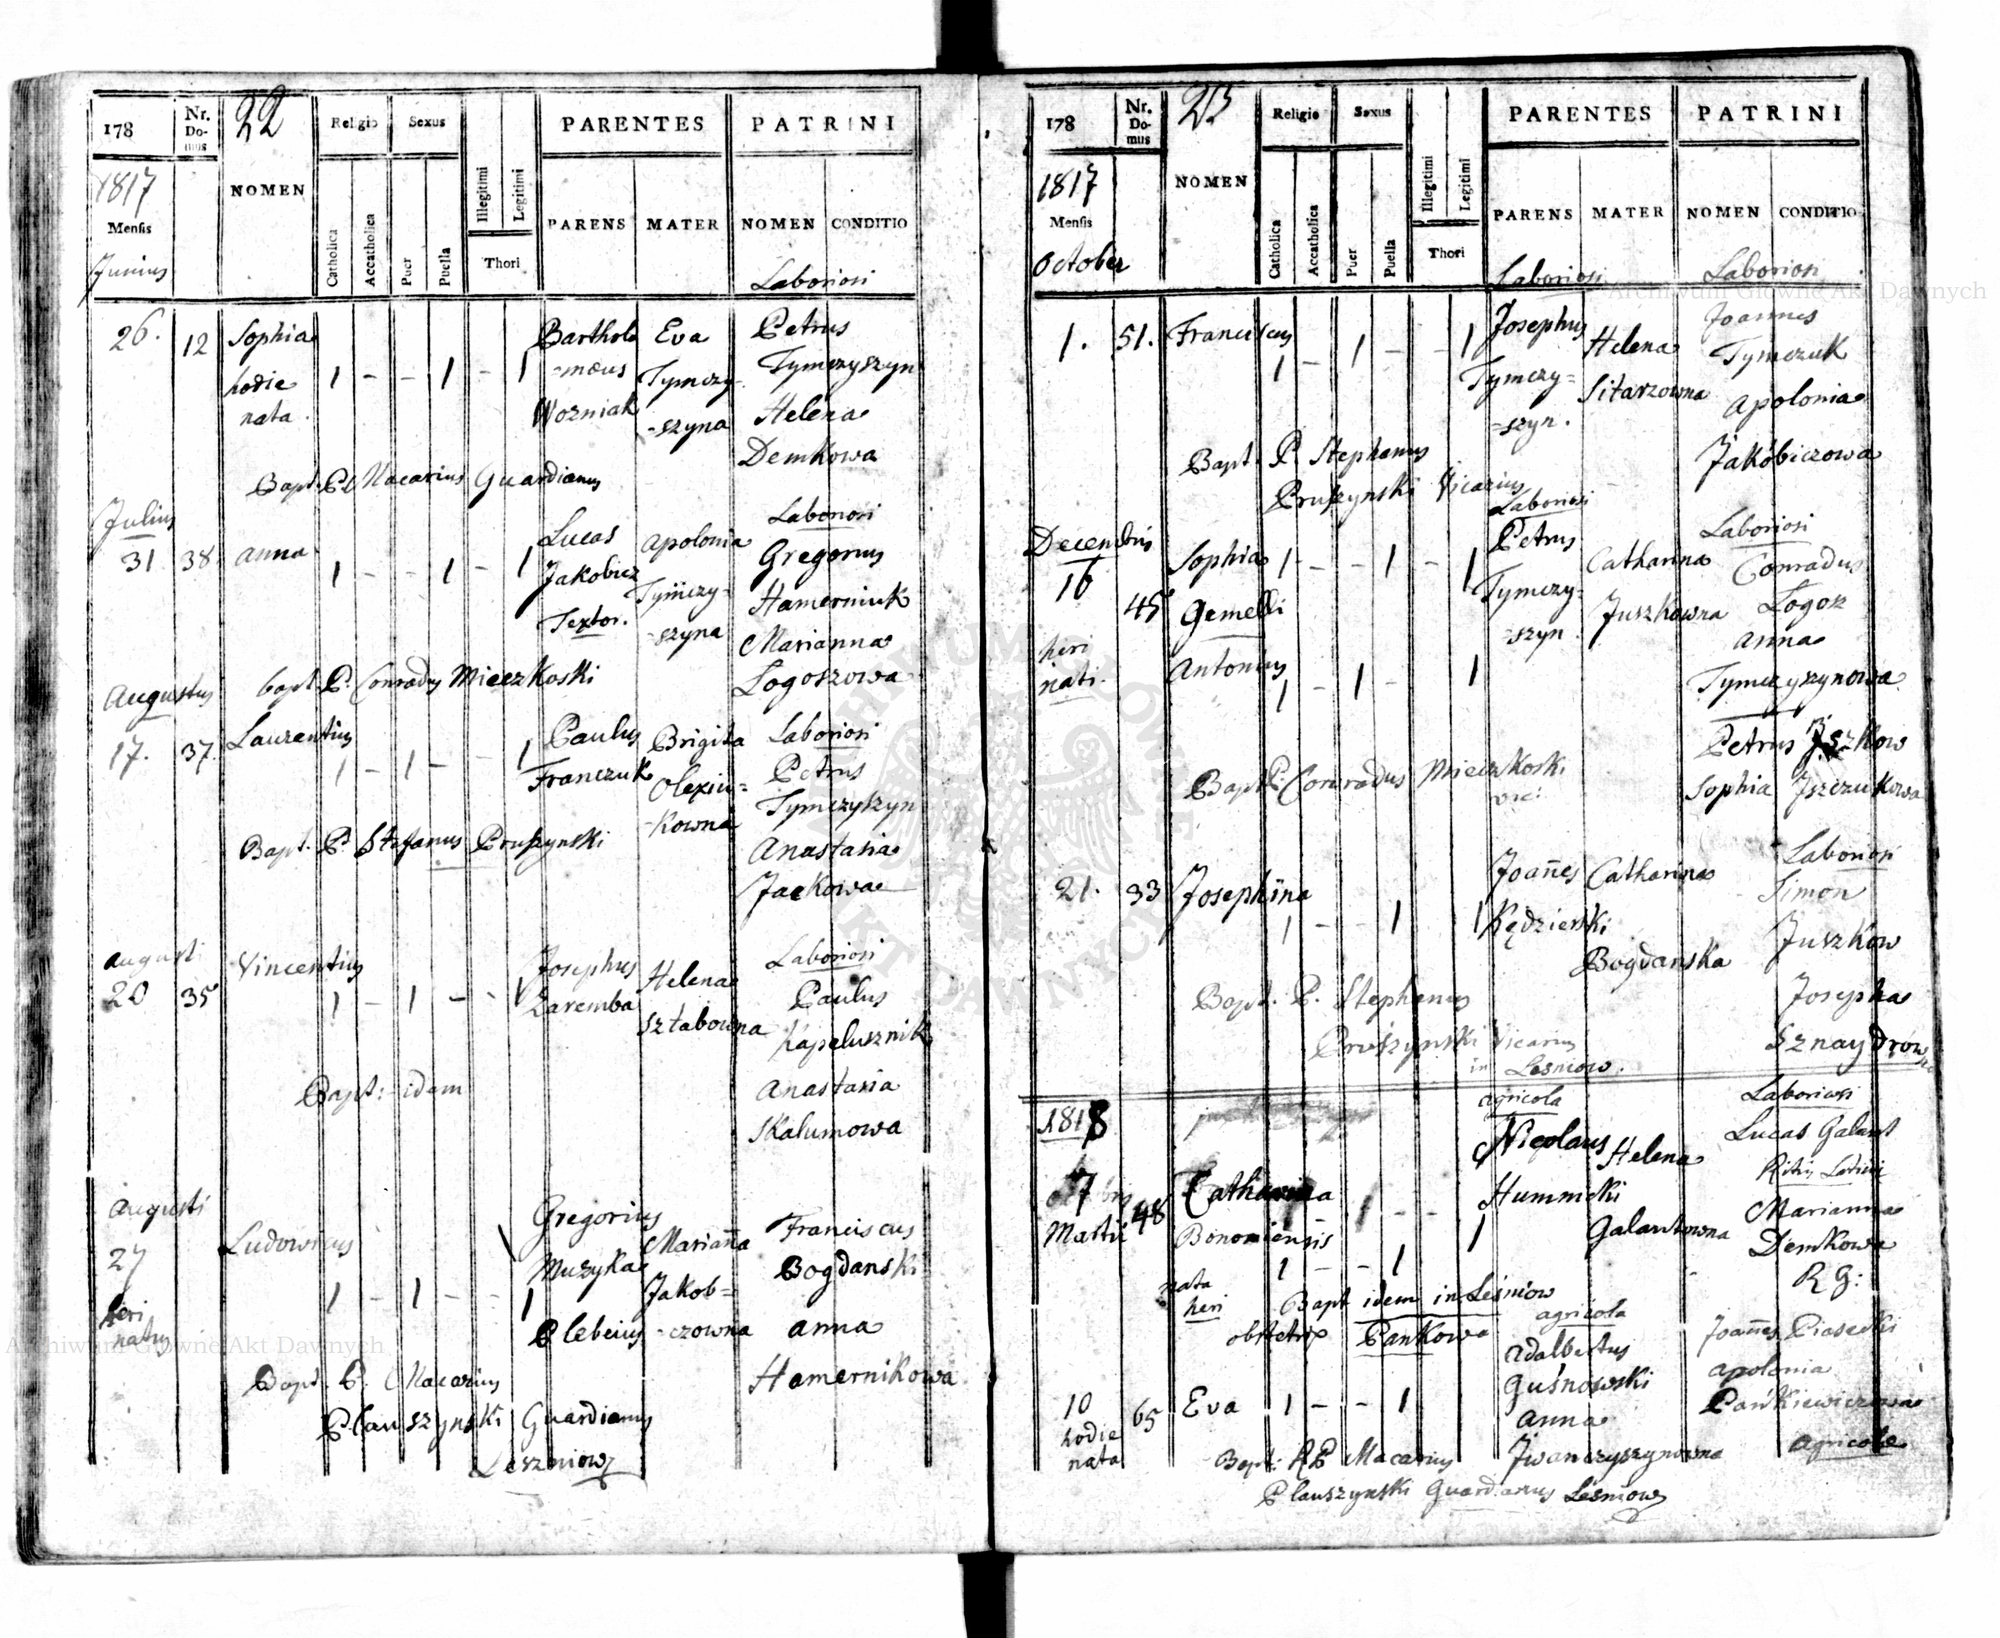 22
178
Nr. Domus
NOMEN
Religio
Sexus
Catholica
Accatholica
Puer
Puella
Illegitimi
Legitimi
Thori
PARENTES
PARENS
MATER
PATRINI
NOMEN
CONDITIO
1817
Mensis
Junius
Laboriosi
26. 12 Sophia 1 - - 1 - 1 Bartholo Eva Petrus
hodie -mæus Tymczy- Tymczyszyn
nata. Wozniak -szyna Helena
Demkowa
Bapt. P. Macarius Guardianus
Julius
Laboriosi
31. 38. Anna 1 - - 1 - 1 Lucas Apolonia Gregorius
Jakobicz Tymczy- Hamerniuk
Textor. -szyna Marianna
Logoszowa
bapt. P. Conradus Mieczkoski
Augustus
17. 37. Laurentius 1 - 1 - - 1 Paulus Brigita Laboriosi
Franczuk Olexiu= Petrus
-kowna Tymczyszyn
Bapt. P. Stefanus Pruszynski
Anastasia
Jackowa
Augusti
20 35 Vincentius 1 - 1 - - 1 Josephus Helena Laboriosi
Zaremba Sztabowna Paulus
Kapelusznik
Bapt: idem
Anastasia
Skalumowa
Augusti
27 Ludowicus 1 - 1 - - 1 Gregorius Marianna Franciscus
Muzyka Jakob= Bogdanski
heri
natus Plebeius -czowna Anna
Hamernikowa
Bapt. P. Macarius
Plauszynski Guardianus
Leszniow
23
178
Nr. Domus
NOMEN
Religio
Sexus
Catholica
Accatholica
Puer
Puella
Illegitimi
Legitimi
Thori
PARENTES
PARENS
MATER
PATRINI
NOMEN
CONDITIO
1817
Mensis
October
Laboriosi Laboriosi
1. 51. Franciscus 1 - 1 - - 1 Josephus Helena Joannes
Tymczy= Sitarzowna Tymczuk
=szyn. Apolonia
Jakóbiczowa
Bapt. P. Stephanus
Pruszynski Vicarius
Decembris
Laboriosi Laboriosi
16 45 Sophia 1 - - 1 - 1 Petrus Catharina Conradus
Gemelli Tymczy= Juszkowna Logosz
-szyn. Anna
heri
nati. Antonius 1 - 1 - 1 Tymczyszynowa
Petrus
Bapt. P. Conradus Mieczkoski
Sophia Jszczukowa
Laboriosi
21. 33 Josephina 1 - - 1 1 Joannes Catharina Simon
Kędzierski Bogdanska Juszkow
Bapt. P. Stephanus
Josepha
Pruszynski Vicarius
Sznaydrow
in Lesniow.
1818
agricola Laboriosi
7 48 Catharina Nicolaus Helena Lucas Galant
Martii Bononiensis Galantowna Ritus Latini
Marianna
nata 1 - - 1 1 Demkowa
heri R G:
Bapt idem in Leśniow
obstetrix Pankowa
agricola
Adalbertus Joannes Piasecki
10 65 Eva 1 - - 1 Guśnowski Apolonia
hodie Anna Pańkiewiczowa
nata Jwanczyszynowna agricolae
Bapt: R P Macarius
Plauszynski Guardianus Leśniow
Archiwum Główne Akt Dawnych
Archiwum Główne Akt Dawnych
ARCHIWUM GŁÓWNE AKT DAWNYCH